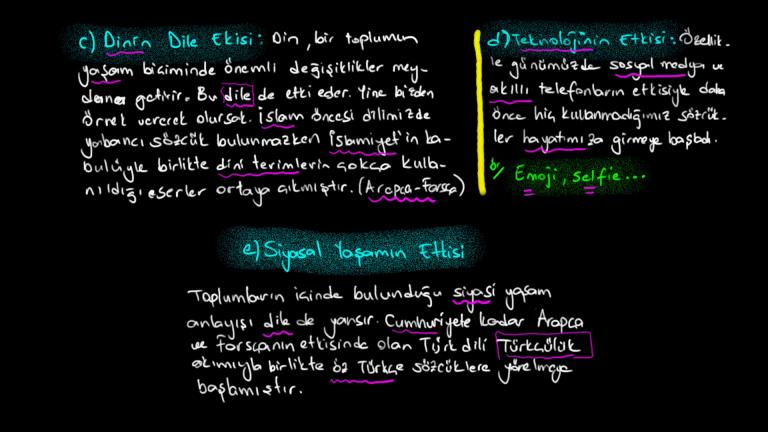 c) Dinin Dile Etkisi: Din, bir toplumun
yaşam biciminde önemli değişiklikler mey-
dana getirir. Bu dile de etki eder. Yine bizden
örnek verecek olursak. İslam öncesi dilimizde
yabancı sözcük bulunmazken İslamiyet'in ka-
bulüyle birlikte dini terimlerin çokça kulla-
nıldığı eserler ortaya çıkmıştır. (Arapça-Farsça)
d) Teknolojinin Etkisi: Özellik-
le günümüzde sosyal medya ve
akıllı telefonların etkisiyle daha
önce hiç kullanmadığımız sözcük-
ler hayatımıza girmeye başladı.
Emoji, selfie...
e) Siyasal Yaşamın Etkisi
Toplumların içinde bulunduğu siyasi yaşam
anlayışı dile de yansır. Cumhuriyete kadar Arapça
ve Farsçanın etkisinde olan Türk dili Türkçülük
akımıyla birlikte öz Türkçe sözcüklere yönelmeye
başlamıştır.